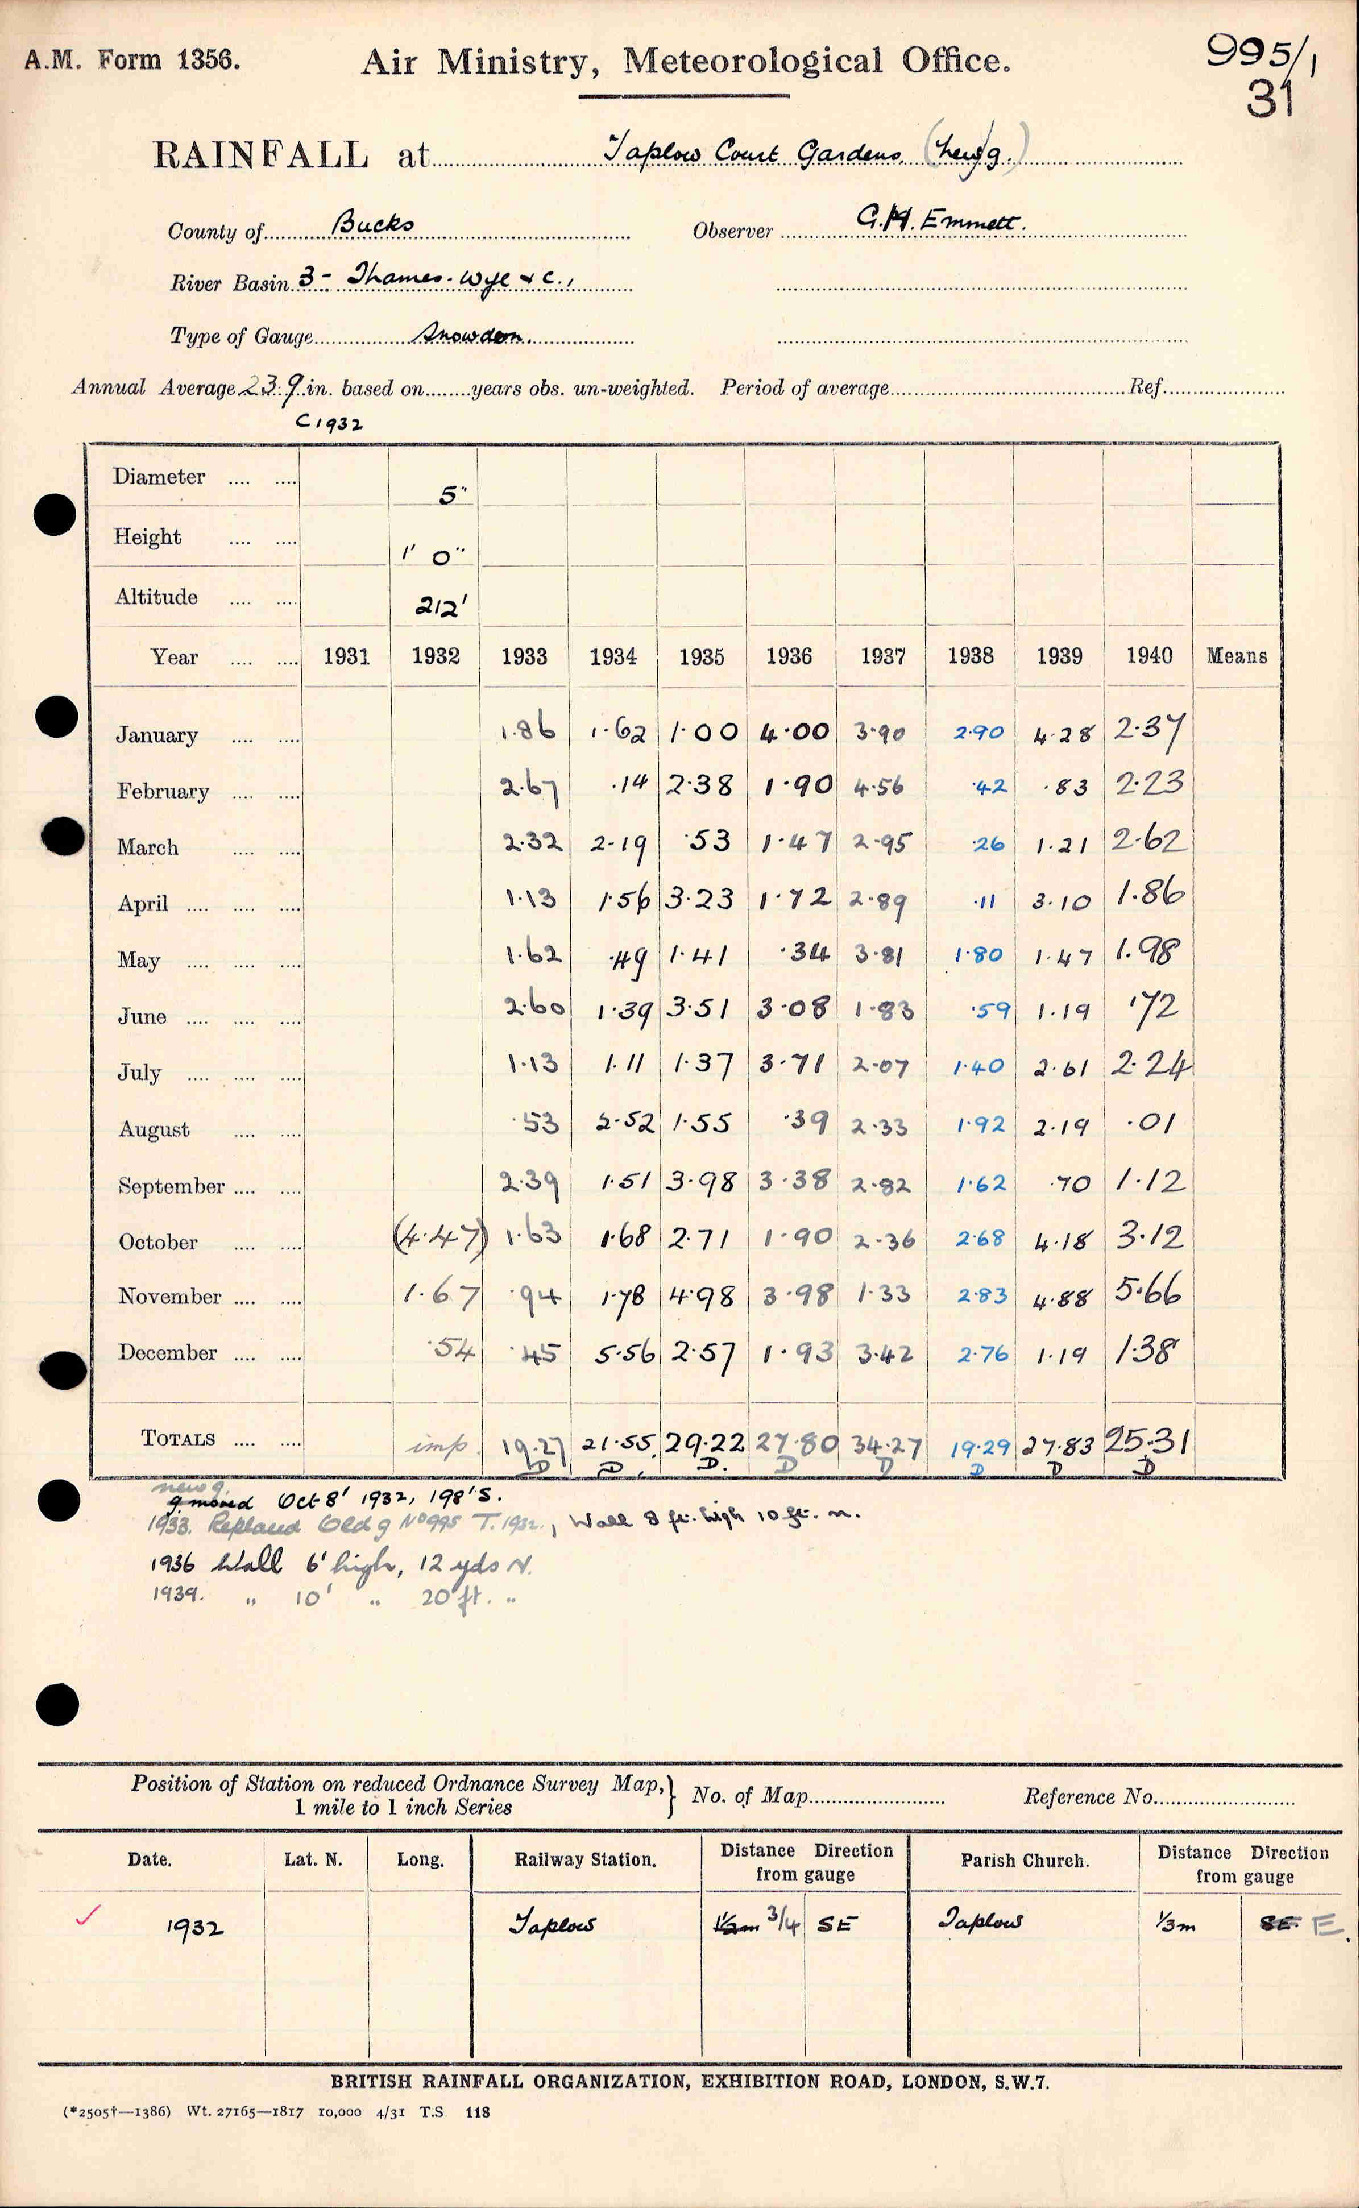 A.M. Form 1356.
Air Ministry, Meteorological Office.
995/1
31
RAINFALL at Taplow Court Gardens (new g.)
County of Bucks Observer G.H. Emmett.
River Basin 3- Thames-Wye & c.,
Type of Gauge Snowdon.
Annual Average 23.9 in. based on years obs. un-weighted. Period of average Ref.
C 1932
Diameter 5"
Height 1' 0"
Altitude 212'
Year 1931 1932 1933 1934 1935 1936 1937 1938 1939 1940 Means
January 1.86 1.62 1.00 4.00 3.90 2.90 4.28 2.37
February 2.67 .14 2.38 1.90 4.56 .42 .83 2.23
March 2.32 2.19 .53 1.47 2.95 .26 1.21 2.62
April 1.13 1.56 3.23 1.72 2.89 .11 3.10 1.86
May 1.62 .49 1.41 .34 3.81 1.80 1.47 1.98
June 2.60 1.39 3.51 3.08 1.83 .59 1.19 .72
July 1.13 1.11 1.37 3.71 2.07 1.40 2.61 2.24
August .53 2.52 1.55 .39 2.33 1.92 2.19 .01
September 2.39 1.51 3.98 3.38 2.82 1.62 .70 1.12
October (4.47) 1.63 1.68 2.71 1.90 2.36 2.68 4.18 3.12
November 1.67 .94 1.78 4.98 3.98 1.33 2.83 4.88 5.66
December .54 .45 5.56 2.57 1.93 3.42 2.76 1.19 1.38
TOTALS imp. 19.27 21.55 29.22 27.80 34.27 19.29 27.83 25.31
D D D. D D D D D
new g.
g moved Oct 8' 1932, 198' S.
1933. Replaced Old g No 995 T. 1932., Wall 8 ft. high 10 ft. n.
1936 Wall 6' high, 12 yds N.
1939. " 10' " 20 ft. "
Position of Station on reduced Ordnance Survey Map, 1 mile to 1 inch Series } No. of Map Reference No.
Date. Lat. N. Long. Railway Station. Distance Direction from gauge Parish Church. Distance Direction from gauge
1932 Taplow 1/2m 3/4 SE Taplow 1/3m SE E.
BRITISH RAINFALL ORGANIZATION, EXHIBITION ROAD, LONDON, S.W.7.
(*2505†—1386) Wt. 27165—1817 10,000 4/31 T.S 118